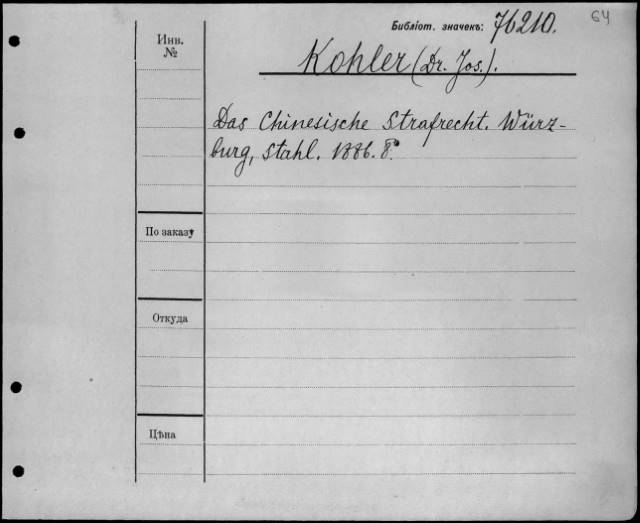 64
Библіот. значекъ: 76210.
Инв.
№
Kohler (Dr. Jos.).
Das Chinesische Strafrecht. Würz-
burg, Stahl. 1886. 8°.
По заказу
Откуда
Цѣна